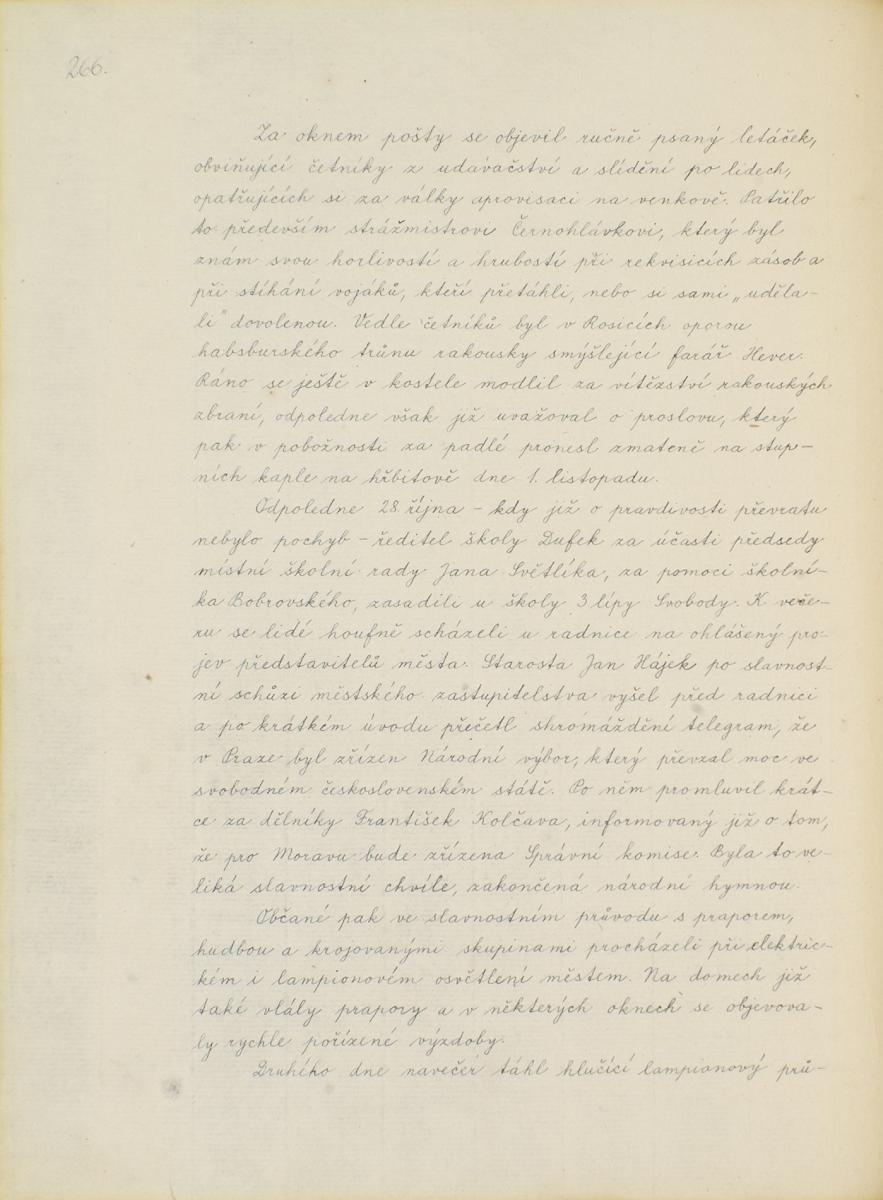 266.
Za oknem pošty se objevil ručně psaný letáček,
obviňující četníky z udávačství a slídění po lidech,
opatřujících si za války aprovisaci na venkově. Patřilo
to především strážmistrovi Černohlávkovi, který byl
znám svou horlivostí a hrubostí při rekvisicích zásob a
při stíhání vojáků, kteří přetáhli, nebo si sami „uděla-
li" dovolenou. Vedle četníků byl v Rosicích oporou
habsburského trůnu rakousky smýšlející farář Hever.
Ráno se ještě v kostele modlil za vítězství rakouských
zbraní, odpoledne však již uvažoval o proslovu, který
pak v pobožnosti za padlé pronesl zmateně na stup-
ních kaple na hřbitově dne 1. listopadu.
Odpoledne 28. října - kdy již o pravdivosti převratu
nebylo pochyb - ředitel školy Dufek za účasti předsedy
místní školní rady Jana Světlíka, za pomoci školní-
ka Bobrovského, zasadili u školy 3 lípy Svobody. K veče-
ru se lidé houfně scházeli u radnice na ohlášený pro-
jev představitelů města. Starosta Jan Hájek po slavnost-
ní schůzi městského zastupitelstva vyšel před radnici
a po krátkém úvodu přečetl shromáždění telegram, že
v Praze byl zřízen Národní výbor, který převzal moc ve
svobodném československém státě. Po něm promluvil krát-
ce za dělníky František Kolčava, informovaný již o tom,
že pro Moravu bude zřízena Správní komise. Byla to ve-
liká slavnostní chvíle, zakončená národní hymnou.
Občané pak ve slavnostním průvodu s praporem,
hudbou a krojovanými skupinami procházeli při elektric-
kém i lampionovém osvětlení městem. Na domech již
také vlály prapory a v některých oknech se objevova-
ly rychle pořízené výzdoby.
Druhého dne navečer táhl hlučící lampionový prů-